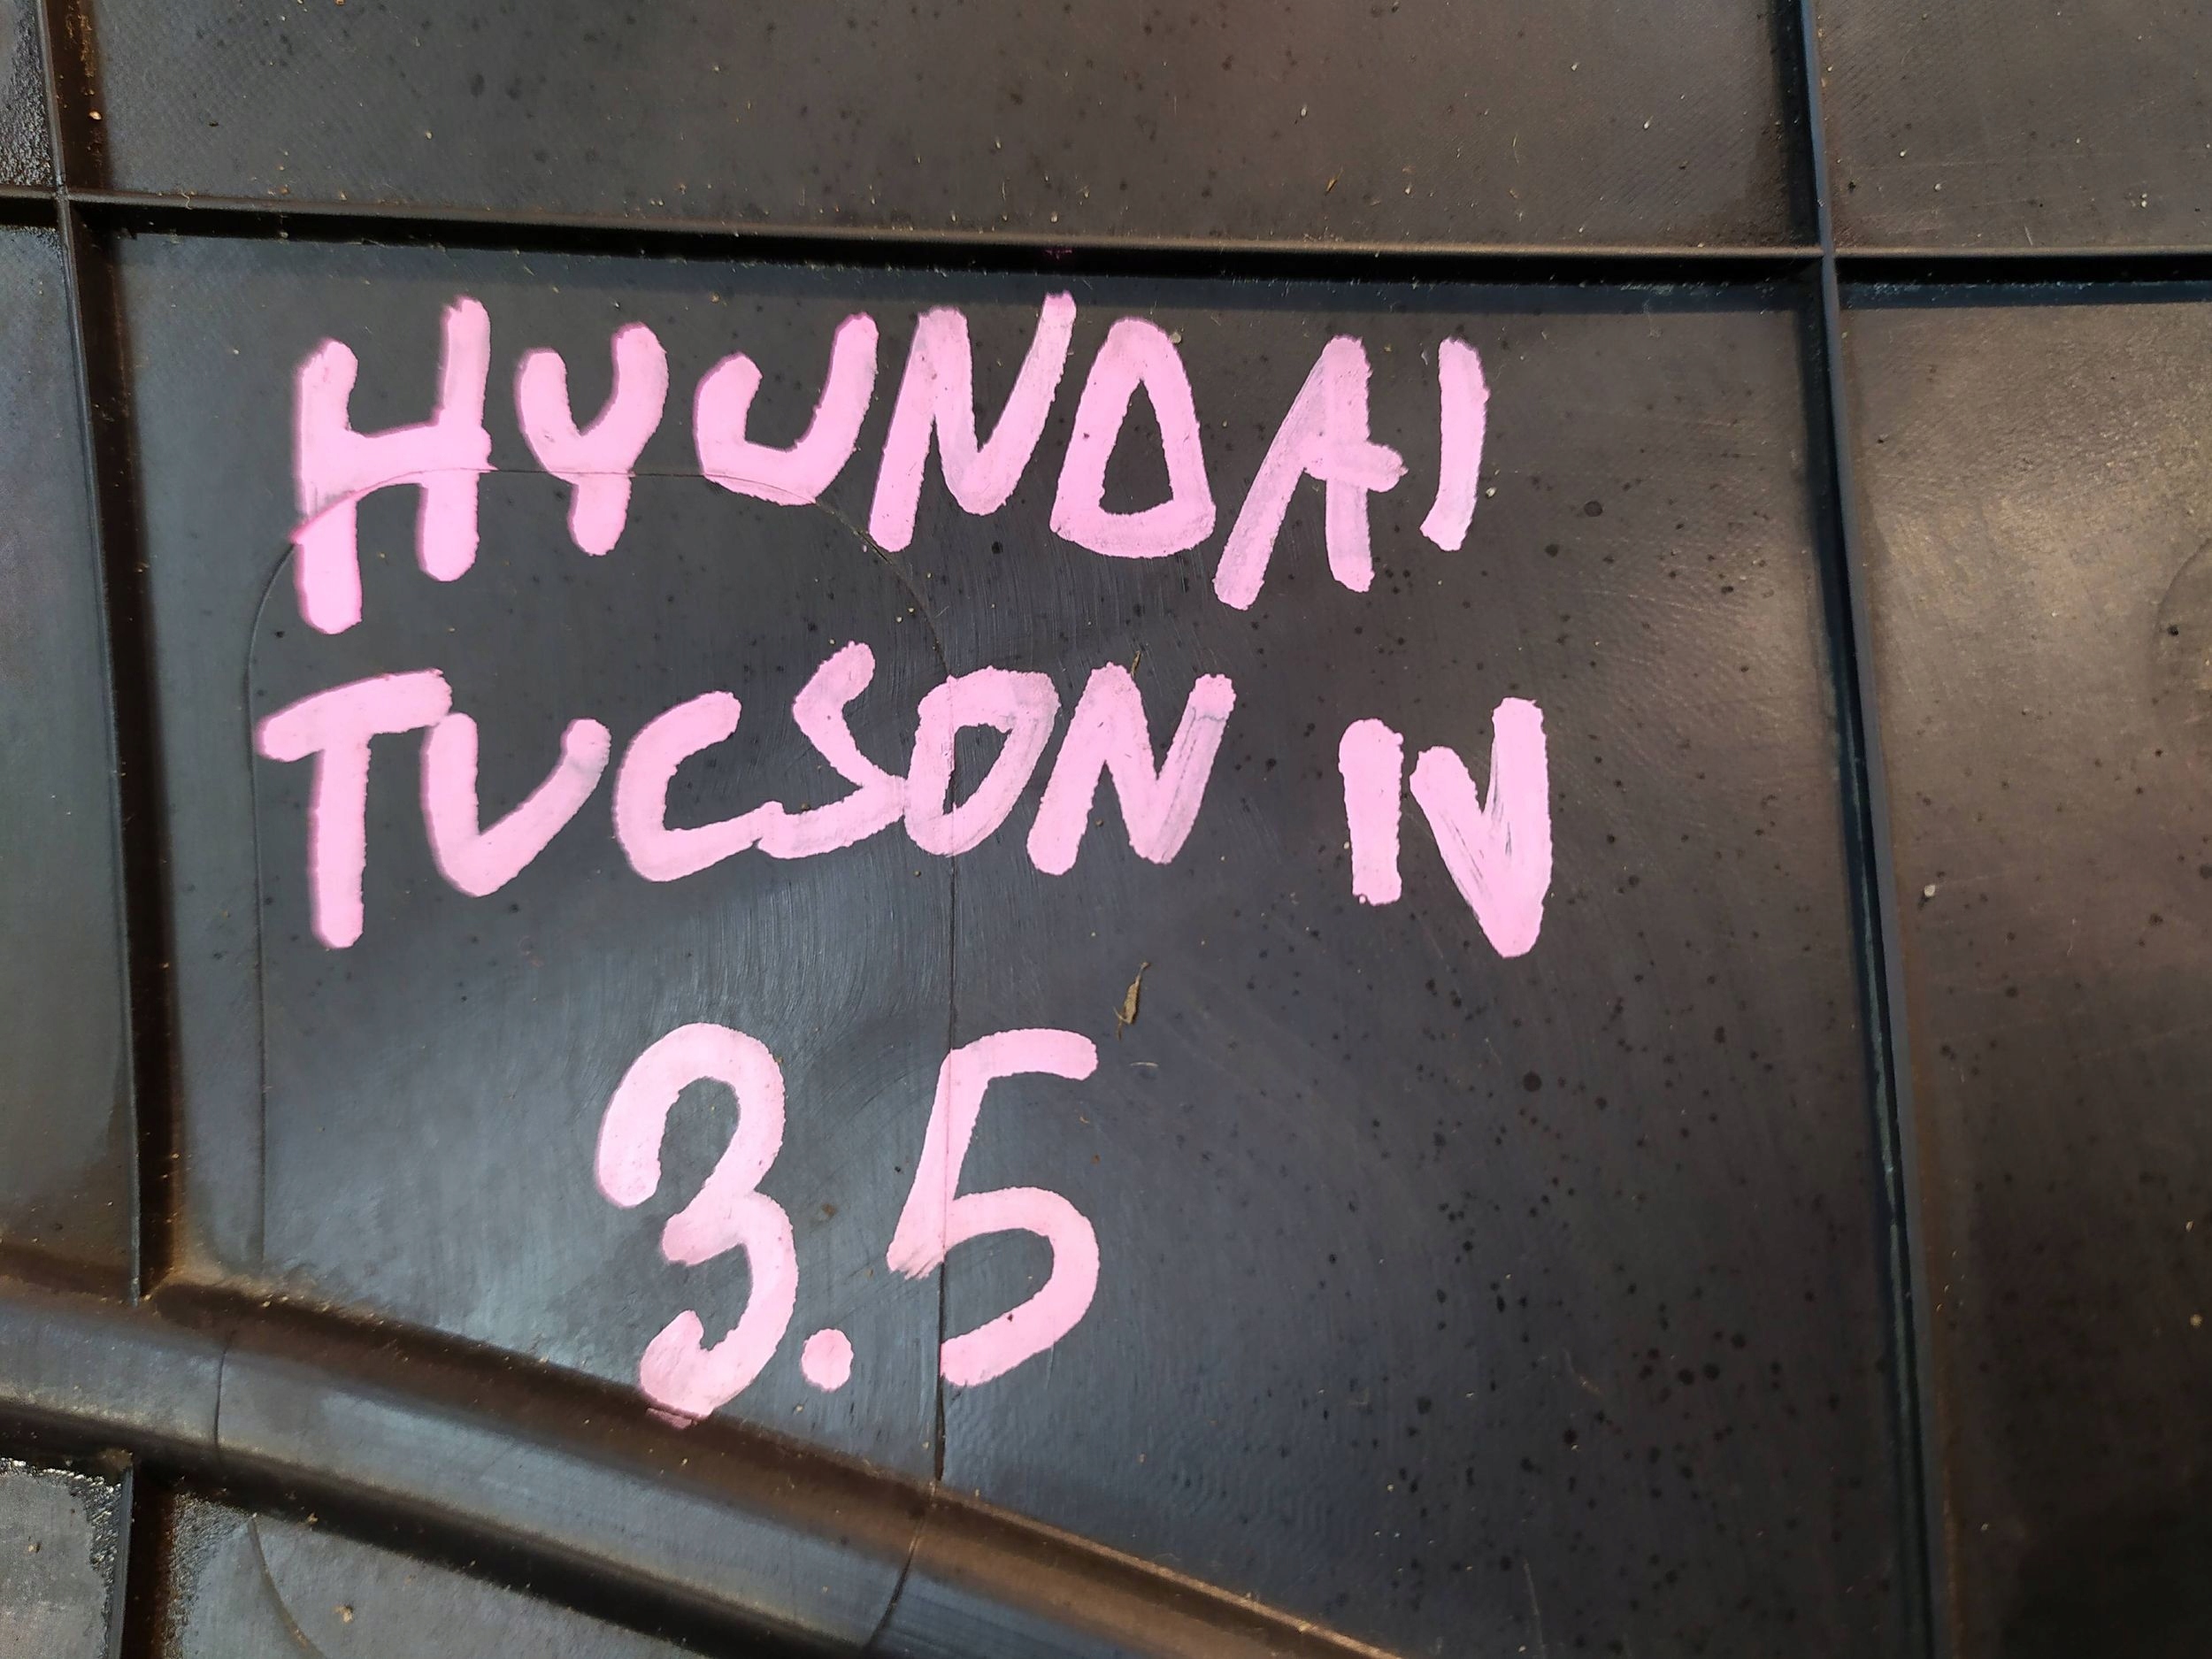 HYUNDAI
TUCSON IV
3.5